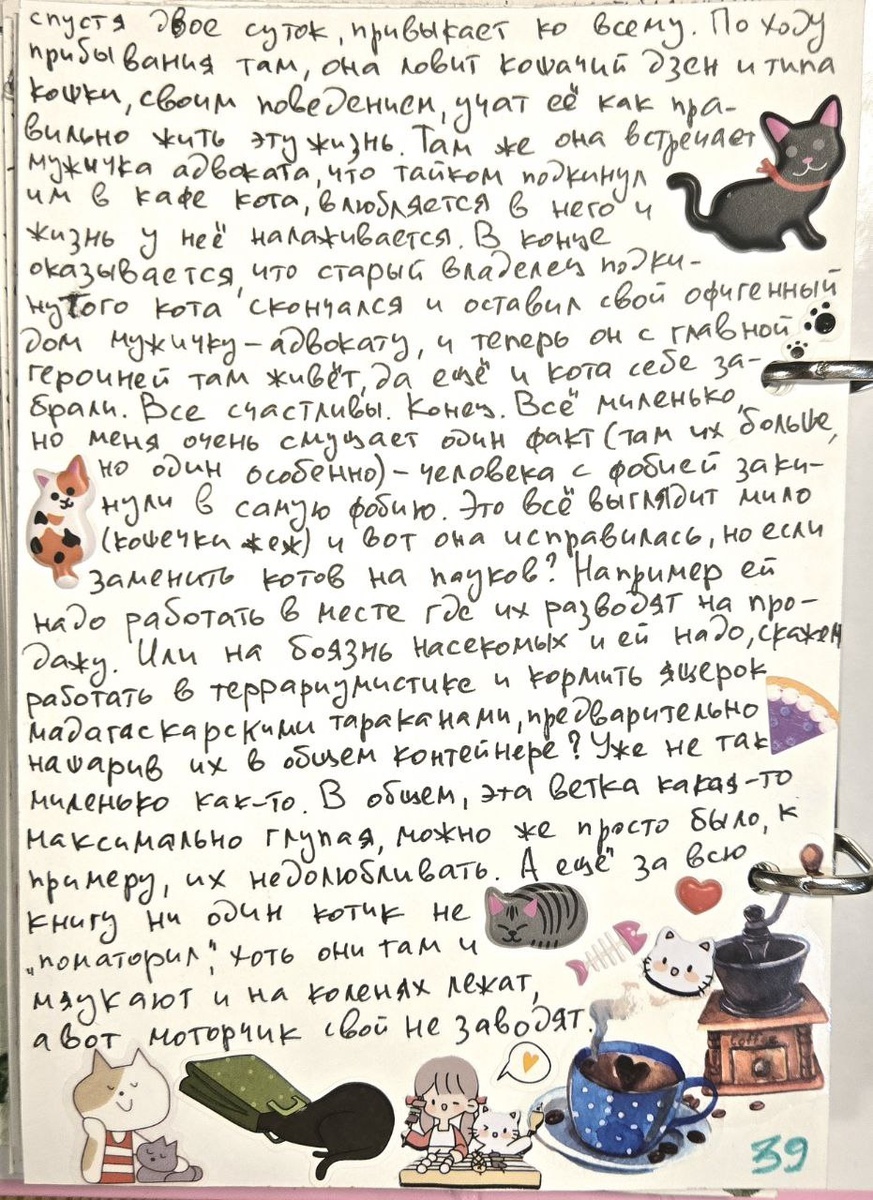 спустя двое суток, привыкает ко всему. По ходу
прибывания там, она ловит кошачий дзен и типа
кошки, своим поведением, учат её как пра-
вильно жить эту жизнь. Там же она встречает
мужичка адвоката, что тайком подкинул
им в кафе кота, влюбляется в него и
жизнь у неё налаживается. В конце
оказывается, что старый владелец подки-
нутого кота скончался и оставил свой офигенный
дом мужичку-адвокату, и теперь он с главной
героиней там живёт, да ещё и кота себе за-
брали. Все счастливы. Конец. Всё миленько,
но меня очень смущает один факт (там их больше,
но один особенно) - человека с фобией заки-
нули в самую фобию. Это всё выглядит мило
(кошечки жеж) и вот она исправилась, но если
заменить котов на пауков? Например ей
надо работать в месте где их разводят на про-
дажу. Или на боязнь насекомых и ей надо, скажем
работать в террариумистике и кормить ящерок
мадагаскарскими тараканами, предварительно
нашарив их в общем контейнере? Уже не так
миленько как-то. В общем, эта ветка какая-то
максимально глупая, можно же просто было, к
примеру, их недолюбливать. А ещё за всю
книгу ни один котик не
"поматорил", хоть они там и
мяукают и на коленях лежат,
а вот моторчик свой не заводят.
39